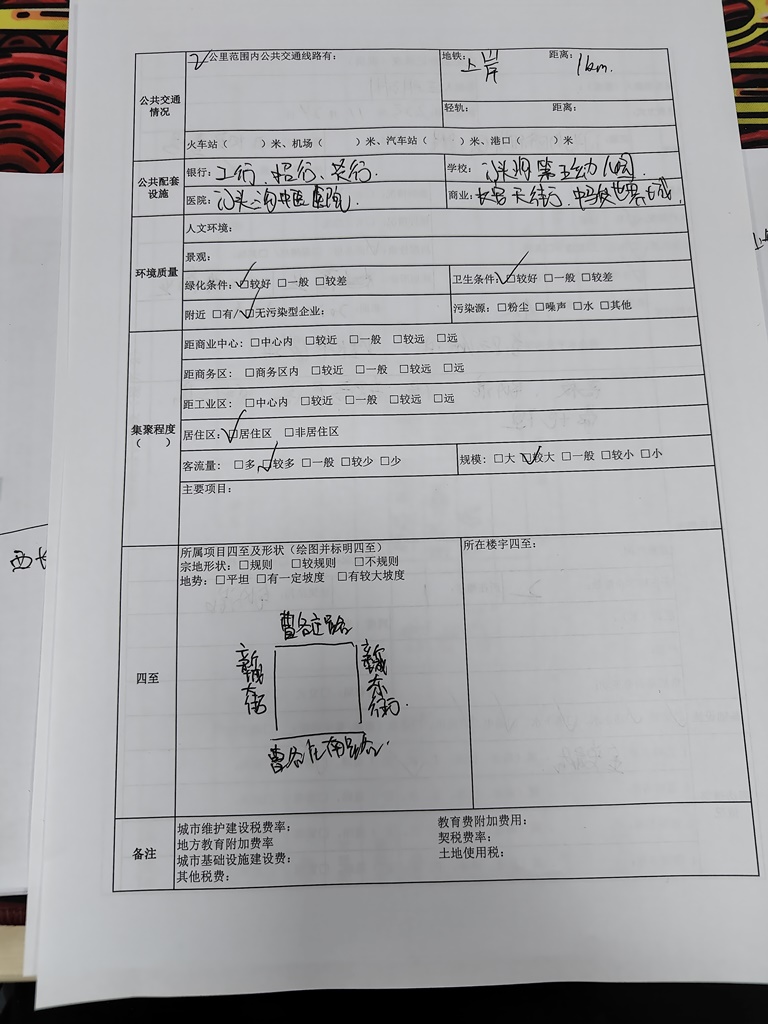 2公里范围内公共交通线路有：
地铁：上岸 距离：1km.
公共交通
情况
轻轨： 距离：
火车站（ ）米、机场（ ）米、汽车站（ ）米、港口（ ）米
公共配套
设施
银行：工行、招行、农行.
学校：门头沟第五幼儿园.
医院：门头沟中医医院.
商业：长安天街、中骏世界城.
环境质量
人文环境：
景观：
绿化条件：☑较好 □一般 □较差
卫生条件：☑较好 □一般 □较差
附近 □有/☑无污染型企业：
污染源：□粉尘 □噪声 □水 □其他
集聚程度
（ ）
距商业中心：□中心内 □较近 □一般 □较远 □远
距商务区：□商务区内 □较近 □一般 □较远 □远
距工业区：□中心内 □较近 □一般 □较远 □远
居住区：☑居住区 □非居住区
客流量：□多 ☑较多 □一般 □较少 □少
规模：□大 ☑较大 □一般 □较小 □小
主要项目：
四至
所属项目四至及形状（绘图并标明四至）
宗地形状：□规则 □较规则 □不规则
地势：□平坦 □有一定坡度 □有较大坡度
所在楼宇四至：
曹各庄路
新城大街
新城东街.
曹各庄南路.
备注
城市维护建设税费率：
教育费附加费用：
地方教育附加费率
契税费率：
城市基础设施建设费：
土地使用税：
其他税费：
西长